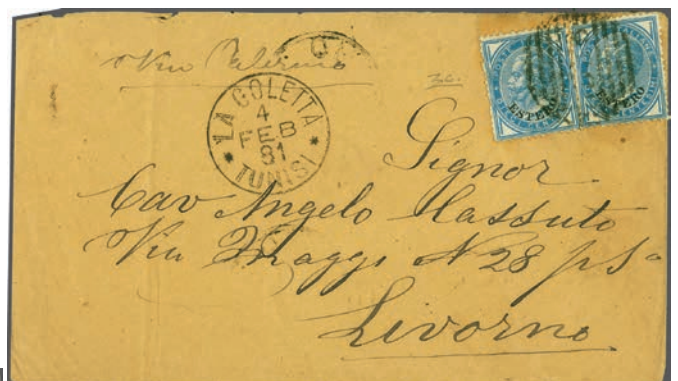 Via Palermo
LA GOLETTA
4
FEB
81
TUNISI
ESTERO
ESTERO
Signor
Cav Angelo
Via Maggi N 28
Livorno